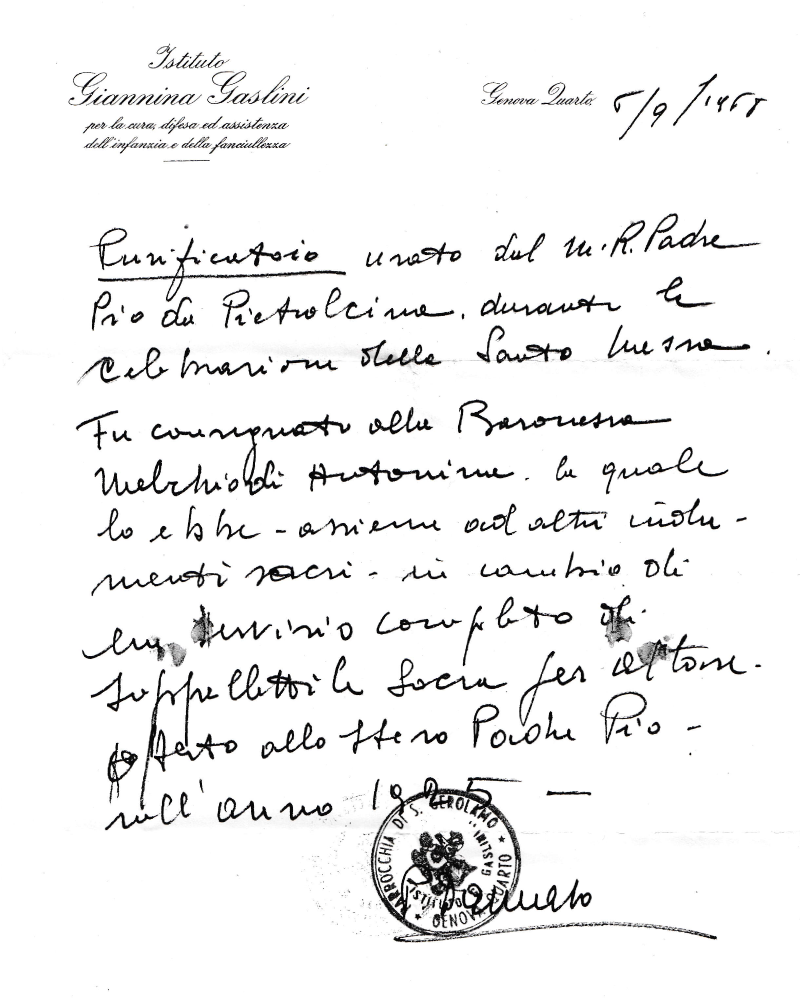 Istituto
Giannina Gaslini
per la cura, difesa ed assistenza
dell'infanzia e della fanciullezza
Genova Quarto, 5/9/1968
Purificatoio usato dal M.R. Padre
Pio da Pietralcina, durante la
Celebrazione della Santa Messa.
Fu consegnato alla Baronessa
Melchiodi Antonina, la quale
lo ebbe - assieme ad altri indu-
menti sacri - in cambio di
un servizio completo di
suppellettile sacra per altare
offerto allo stesso Padre Pio -
nell'anno 1925 —
PARROCCHIA DI S. GEROLAMO
ISTITUTO G. GASLINI
GENOVA QUARTO